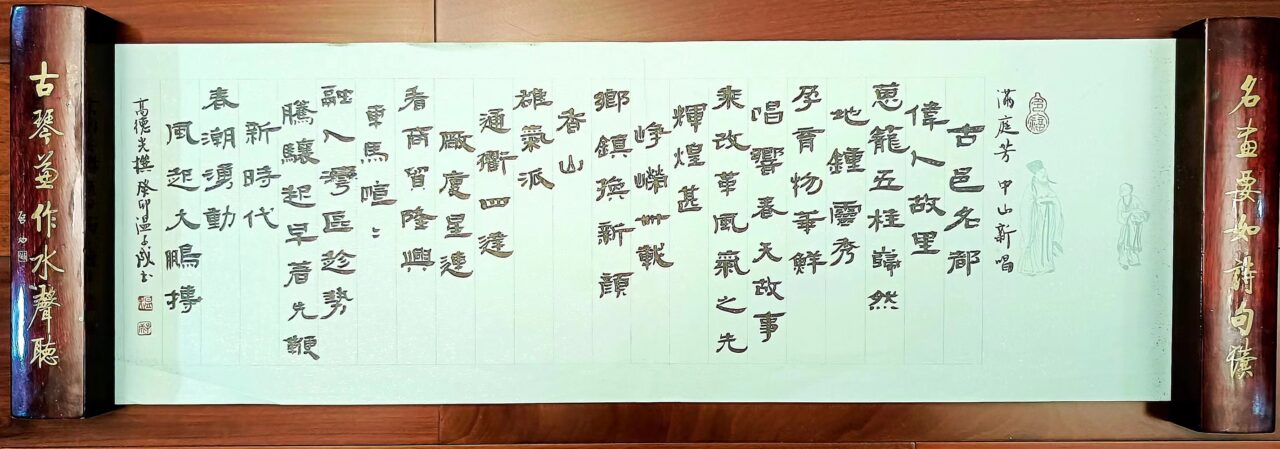 名畫要如詩句讀
滿庭芳 中山新唱
古邑名都
偉人故里
蔥籠五桂巋然
地鍾靈秀
孕育物華鮮
唱響春天故事
乘改革風氣之先
輝煌甚
崢嶸卌載
鄉鎮換新顏
香山
雄氣派
通衢四達
廠廈星速
看商貿隆興
車馬喧〻
融入灣區趁勢
騰驤起早著先鞭
新時代
春潮湧動
風起大鵬摶
高德光撰 癸卯溫子成书
古琴兼作水聲聽
启功